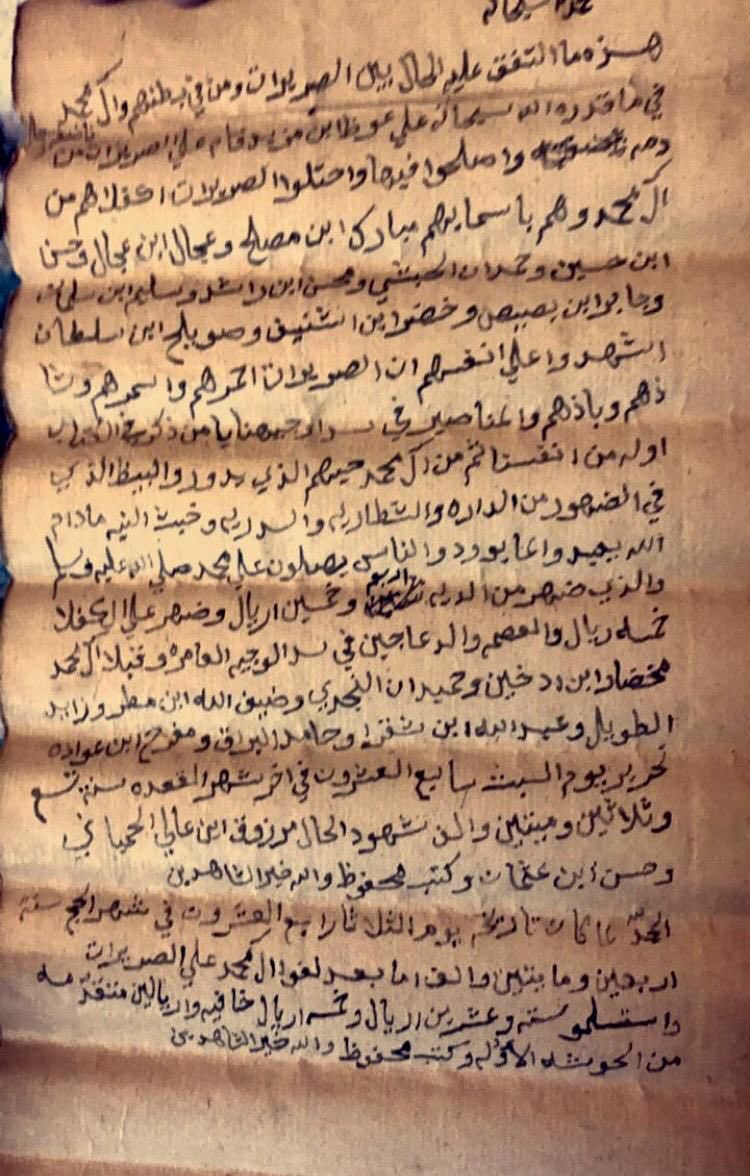 هذه ما اتفق عليه الحال بين الصويرات ومن في بطنهم وال محمد
في ما قدره الله سبحانه علي عوظ ابن مزيد قام علي الصويرات من
دمه واصلحوا فيها واحتلوا الصويرات اكفلاهم من
ال محمد وهم باسمايهم مبارك ابن مصلح وعجال ابن عجال وحسن
ابن حسين وحمدان الحبشي ومحسن ابن راشد وسليم ابن سلمان
وجابر ابن بصيص وخضر ابن الشنيف وصويلح ابن سلطان
اشهدوا علي انفسهم ان الصويرات احمرهم واسمرهم وشا
ذهم وباذهم والمناصير في سد اوجيهنا يا من ذكر في الكتاب
اوله من انفسنا ثم من ال محمد حيهم الذي يدور والبيظ الذي
في الضهور من الداره والشطاريه والدريه وخبث النيه مادام
الله يعبد والما يورد والناس يصلون علي محمد صلي الله عليه وسلم
والذي ضهر من الديه اربع وخمسين اريال وضهر علي الكفلا
خمسه ريال والمعصم والدعاجين في سد الوجيه العامره وقبلا ال محمد
مخضار ابن ادخين وحميدان النجدي وضيف الله ابن مطر وزايد
الطويل وعبد الله ابن شقرا وحامد البراق ومفرح ابن عواده
تحرير يوم السبت سابع العشرون في اخر شهر القعده سنة تسع
وثلاثين وميتين والف شهود الحال مرزوق ابن عالي الحمياني
وحسن ابن عثمان وكتبه محفوظ والله خير الشاهدين
الحمد لله لما كان تاريخه يوم الثلاثا رابع العشرون في شهر الحج سنة
اربعين ومايتين والف اما بعد لفوا ال محمد علي الصويرات
واستسلمو سته وعشرين اريال وخمسه اريال خافيه واريالين متقدمه
من الحوشه الاوله وكتبه محفوظ والله خير الشاهدين